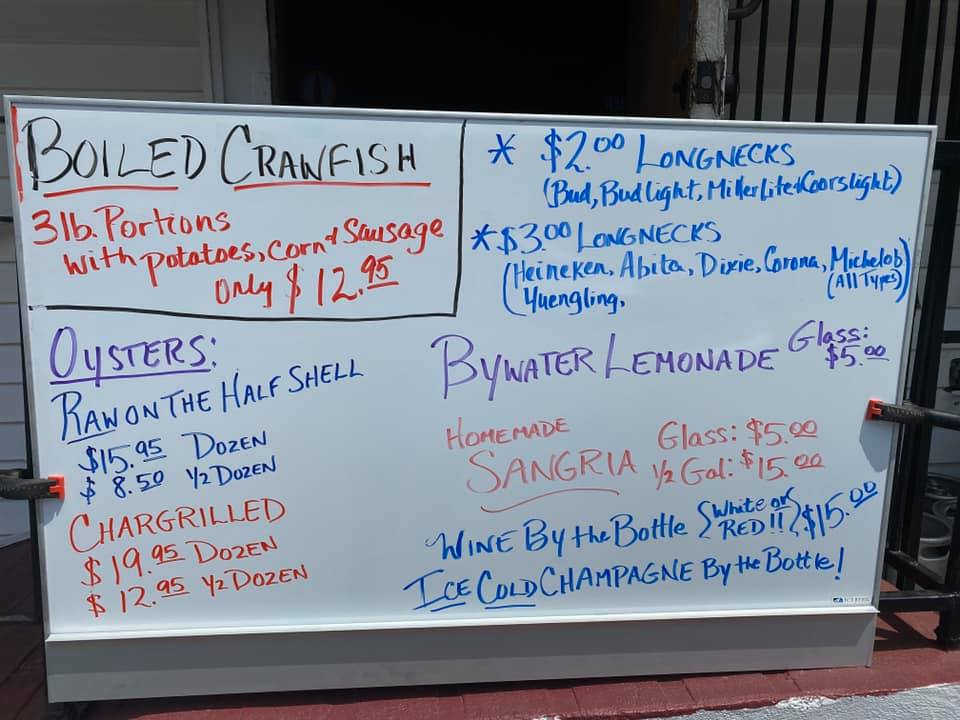 BOILED CRAWFISH
3lb. Portions
with potatoes, corn & Sausage
Only $12.95
* $2.00 LONGNECKS
(Bud, Bud Light, Miller Lite & Coors light)
* $3.00 LONGNECKS
(Heineken, Abita, Dixie, Corona, Michelob
(All Types))
Yuengling,
OYSTERS:
RAW ON THE HALF SHELL
$15.95 DOZEN
$ 8.50 1/2 DOZEN
CHARGRILLED
$19.95 DOZEN
$12.95 1/2 DOZEN
BYWATER LEMONADE Glass:
$5.00
HOMEMADE
SANGRIA
Glass: $5.00
1/2 Gal: $15.00
WINE By the Bottle {White or
RED!!} $15.00
ICE COLD CHAMPAGNE By the Bottle!